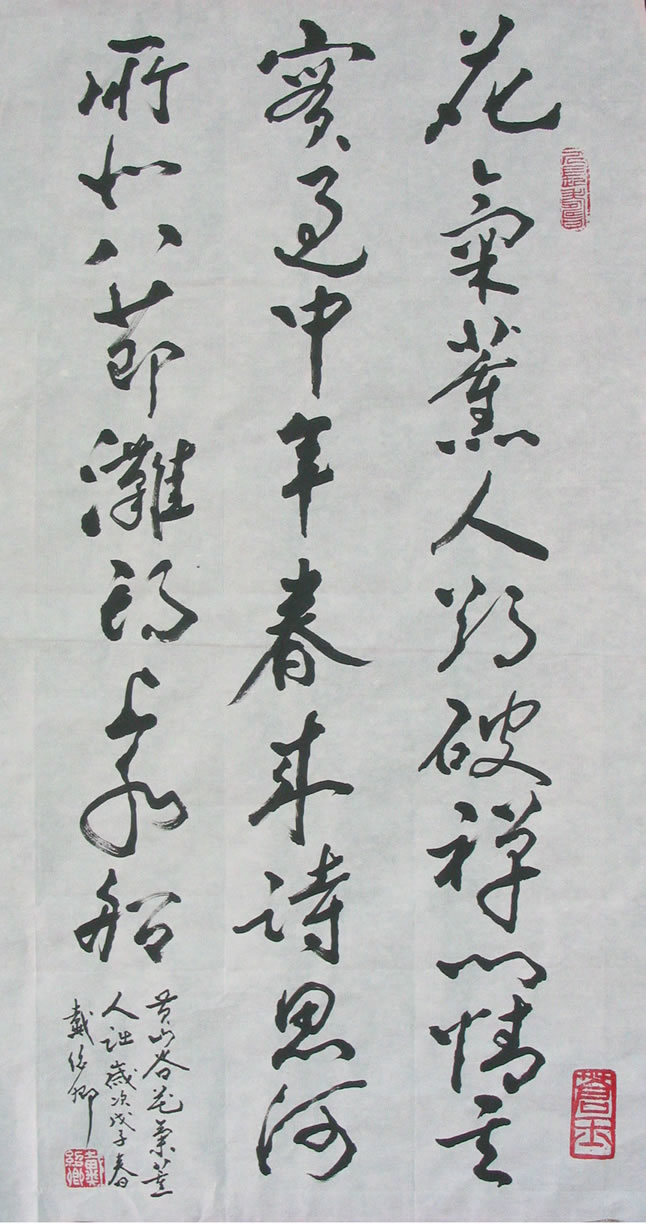 花氣薰人欲破禪心情其
實過中年春來詩思何
所似八節灘頭上水船
黃山谷花氣薰
人 歲次戊子春
戴紹卿